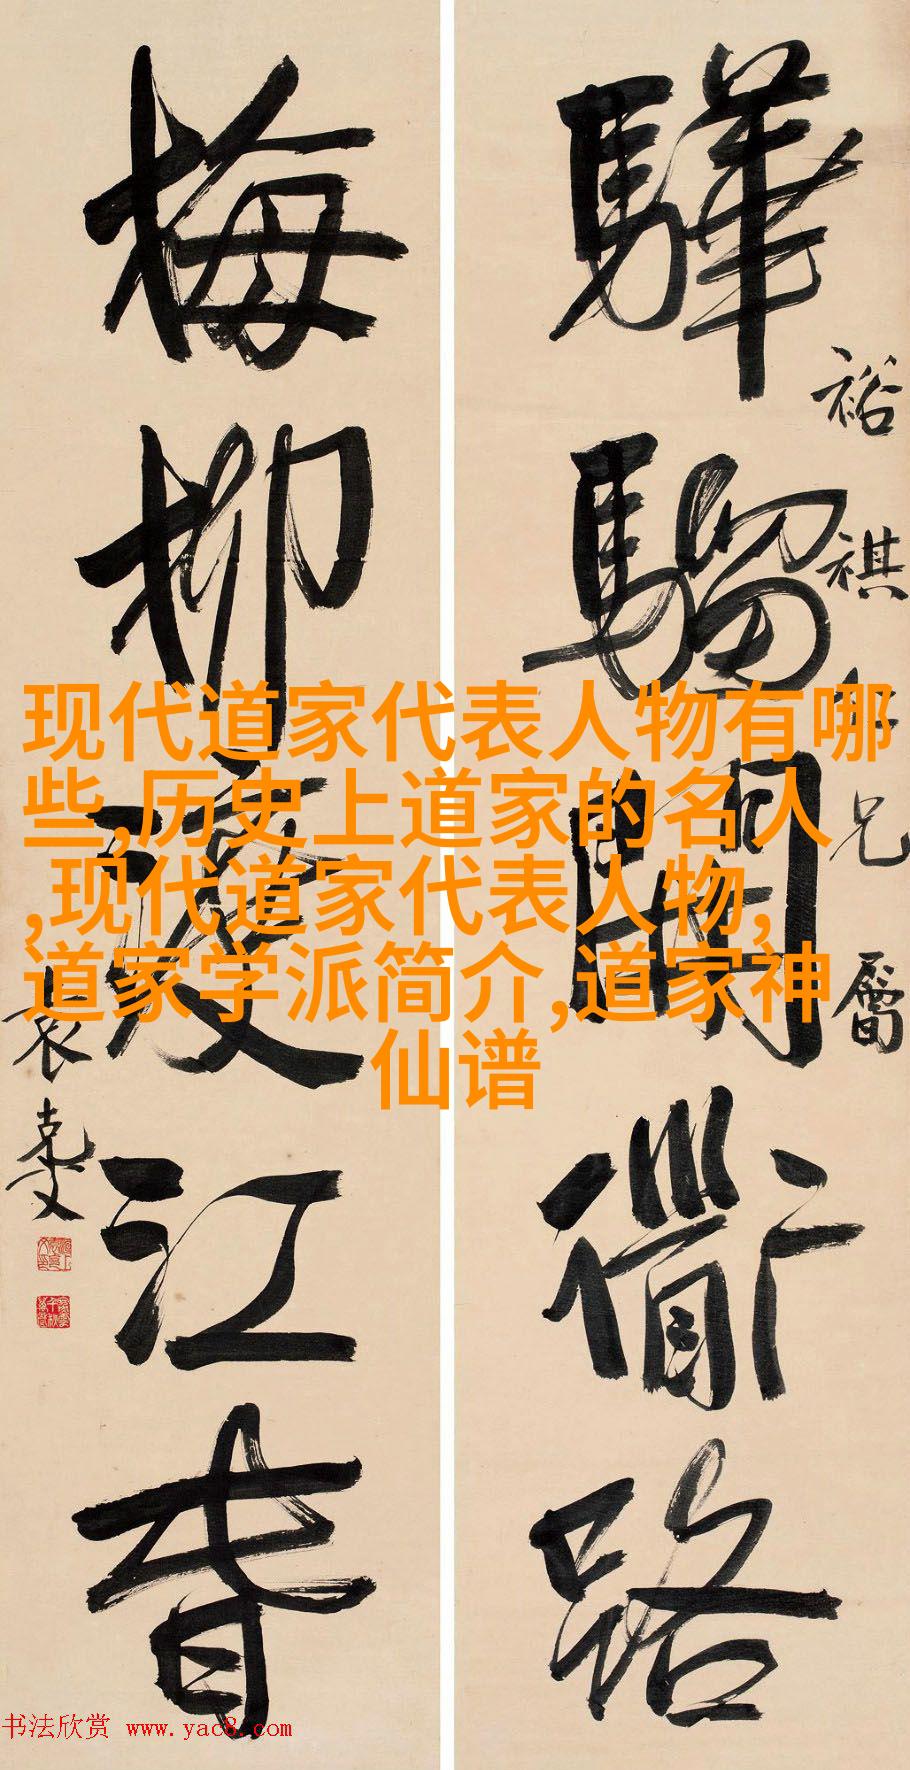 驊騮開衜路
裕祺仁兄屬
梅柳渡江春
袁克文
现代道家代表人物有哪
些,历史上道家的名人
,现代道家代表人物,
道家学派简介,道家神
仙谱
书法欣赏 www.yac8.com